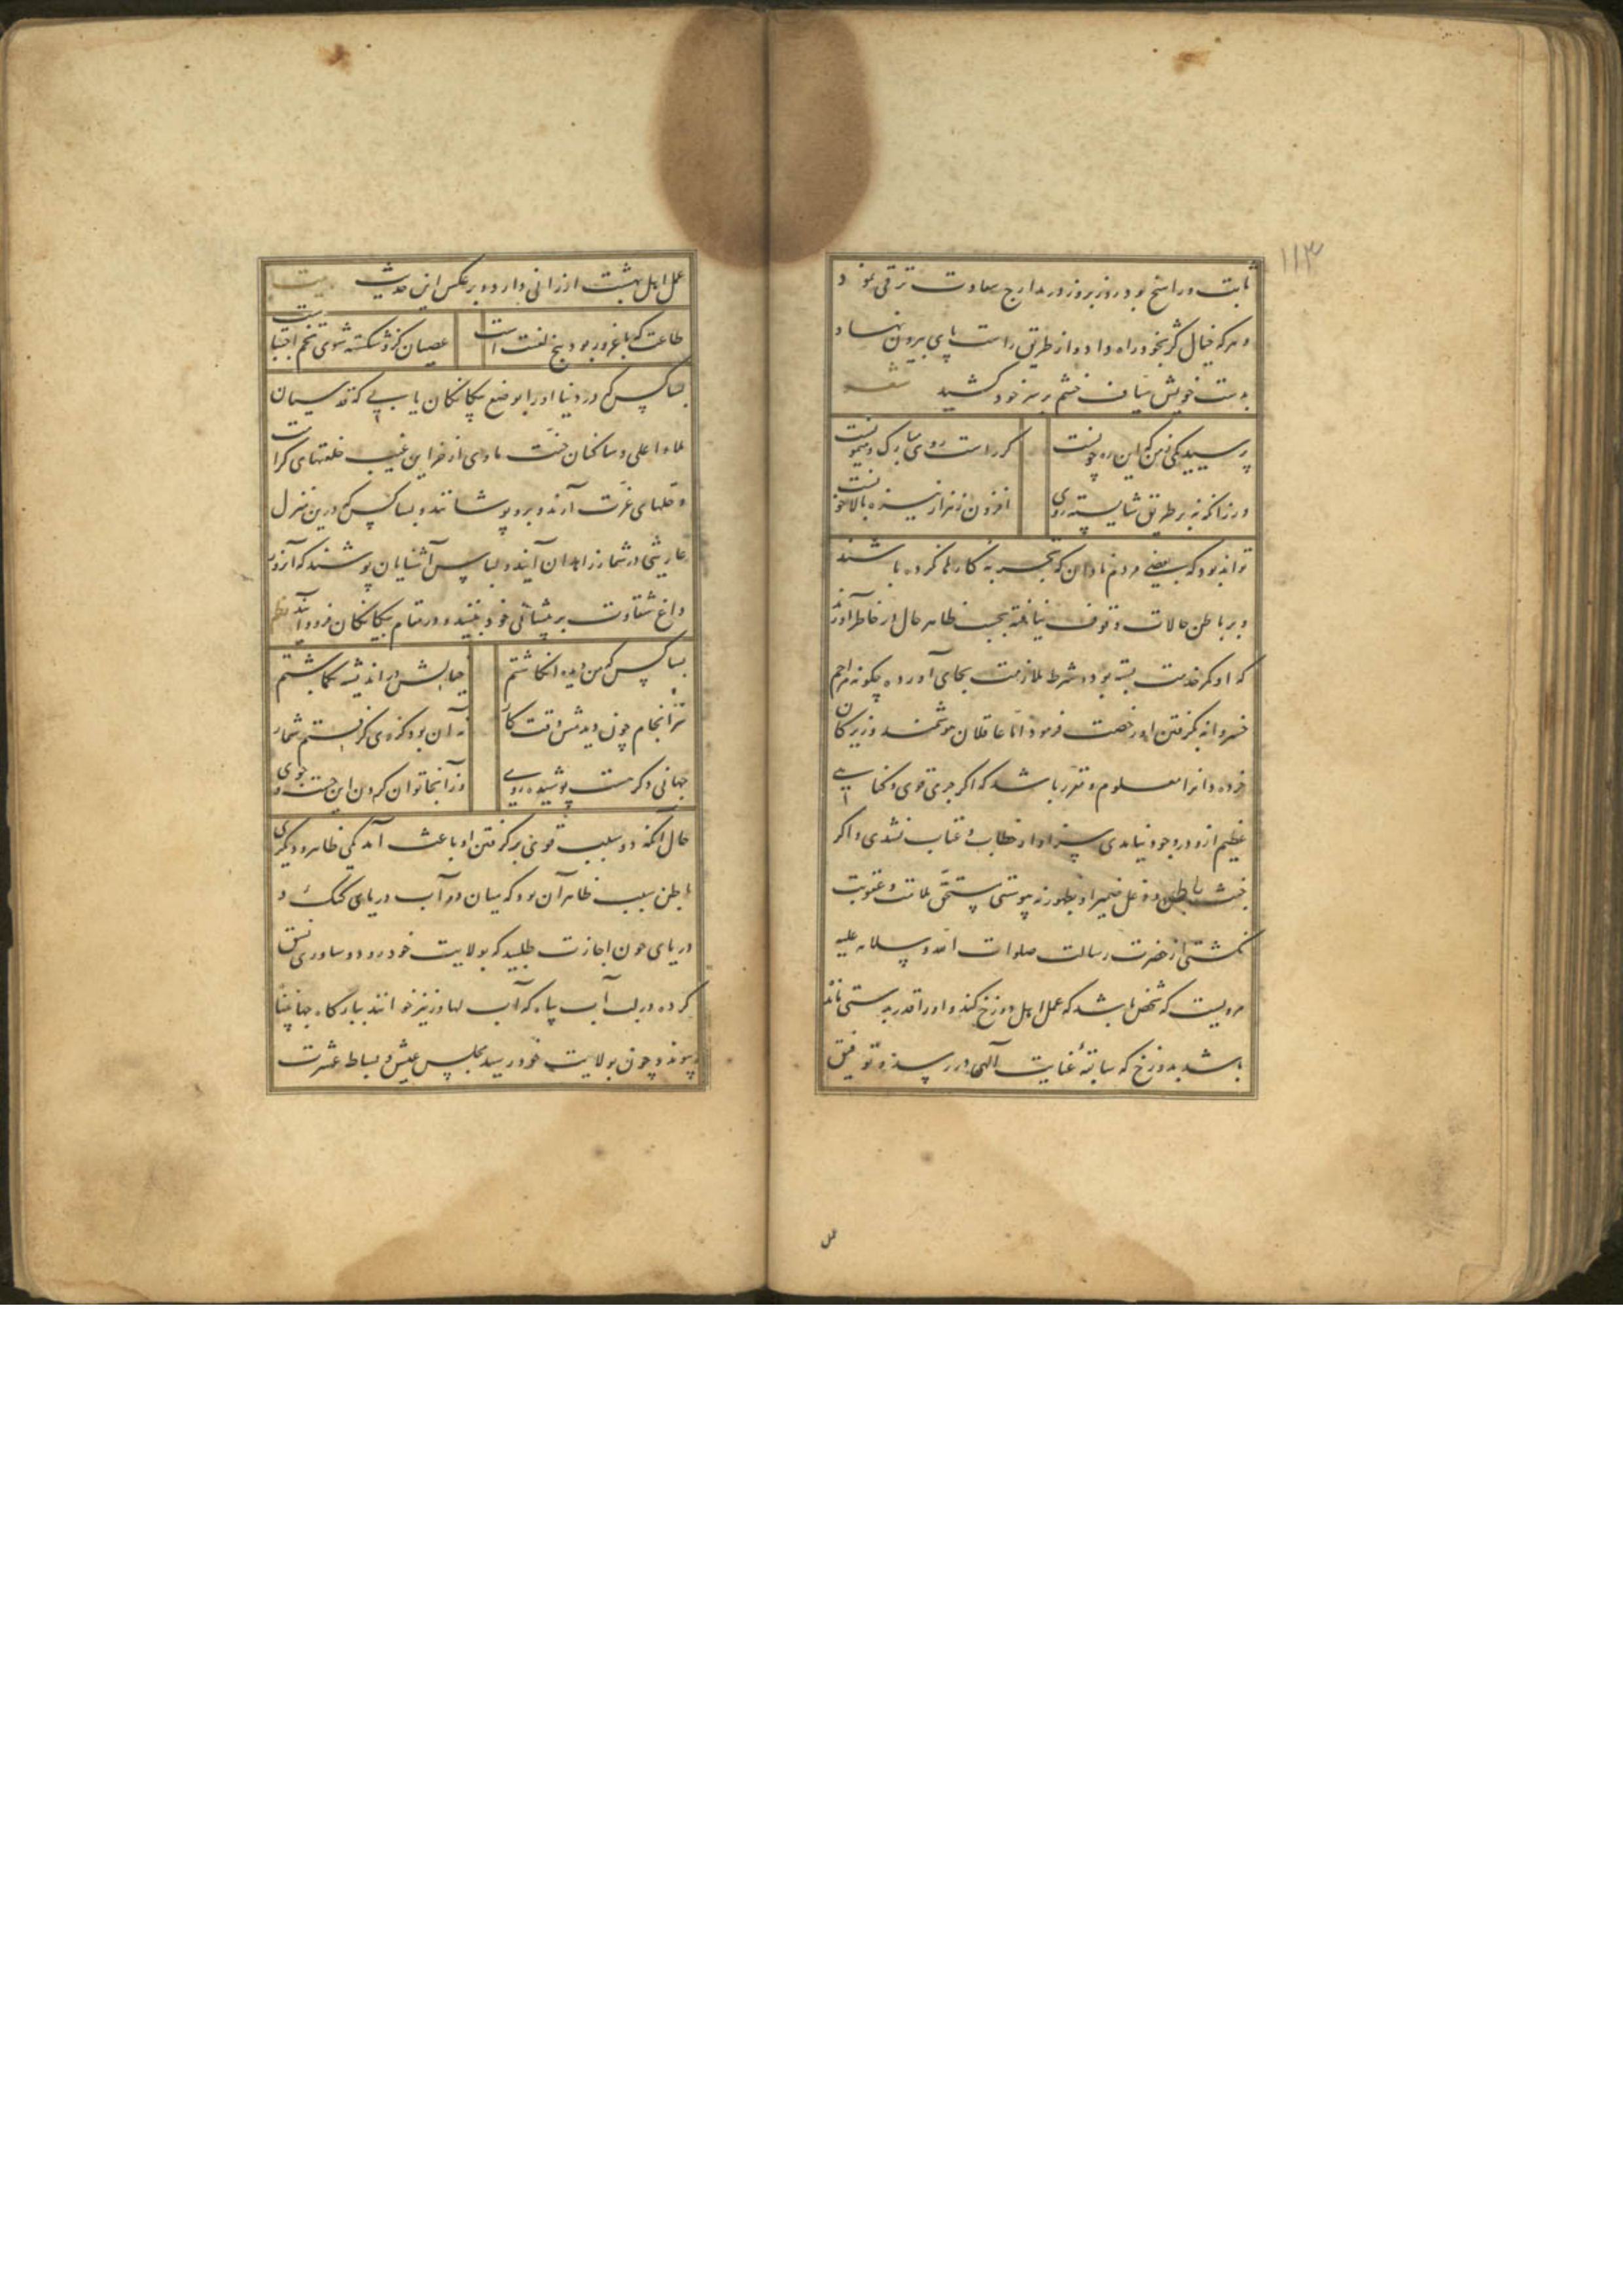 ۱۱۳
ثابت و راسخ بود روز بروز در مدارج سعادت ترقی نمود
و هر که خیال کژ بخود راه داد و از طریق راست پای بیرون نهاد
بدست خویش سیاف خشم بر سر خود کشید شعر
پرسید یکی ز من که این ره چونست
گر راست روی مبارک و میمونست
ور زانکه نه بر طریق شایسته روی
تواند بود که بعضی مردم نادان که تجربه کارها نکرده باشند
و بر باطن حالات وقوف نیافته بحسب ظاهر حال در خاطر آورند
که او کمر خدمت بسته بود و شرط ملازمت بجای آورده چگونه مراحم
خسروانه بگرفتن او رخصت فرمود اما عاقلان هوشمند و زیرکان
خرده دانرا معلوم و مقرر باشد که اگر جرمی قوی و گناهی
عظیم ازو در وجود نیامدی سزاوار خطاب و عتاب نشدی و اگر
خبث باطن و غل ضمیر او بظهور نه پیوستی مستحق ملامت و عقوبت
نگشتی از حضرت رسالت صلوات الله و سلامه علیه
مرویست که شخصی باشد که عمل اهل دوزخ کند و او را قدر بدستی مانده
باشد بدوزخ که سابقهٔ عنایت آلهی در رسد و توفیق
عمل
عمل اهل بهشت ارزانی دارد و بر عکس این حدیث بیت
طاعت که با غرور بود بیخ لعنت است
عصیان کزو شکسته شوی تخم اجتباست
بسا کس که در دنیا او را بوضع بیگانگان یابی که قدسیان
ملاء اعلی و ساکنان جنت ماوی از خزاین غیب خلعتهای کرامت
و حلهای عزت آرند و برو پوشانند و بسا کس که درین منزل
عاریتی در شمار زاهدان آیند و لباس آشنایان پوشند که آنروز
داغ شقاوت بر پیشانی خود بینند و در مقام بیگانگان فرود آیند نظم
بسا کس که من دیده انگاشتم
سرانجام چون دیدمش وقت کار
نه آن بود کز وی گرفتم شمار
جهانی دگر هست پوشیده روی
وز آنجا توان کردن این جست و جوی
حال آنکه دو سبب قوی بر گرفتن او باعث آمد یکی ظاهر و دیگری
باطن سبب ظاهر آن بود که میان دو آب دریای گنگ و
دریای جون اجازت طلبید که بولایت خود رود و ساوری نسق
کرده در لب آب بیاه که آب لهاور نیز خوانند ببارگاه جهانپناه
پیوندد چون بولایت خود رسید مجلس عیش و بساط عشرت